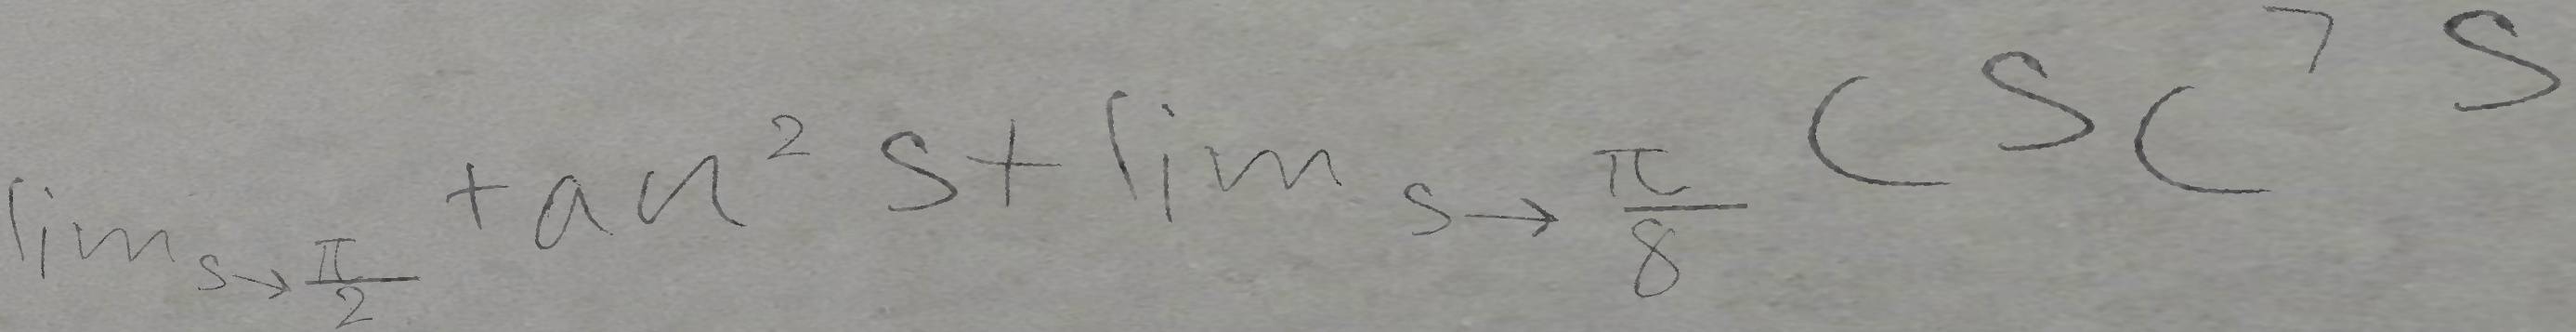 lim_{s→\frac{π}{2}} tan² s + lim_{s→\frac{π}{8}} csc⁷ s